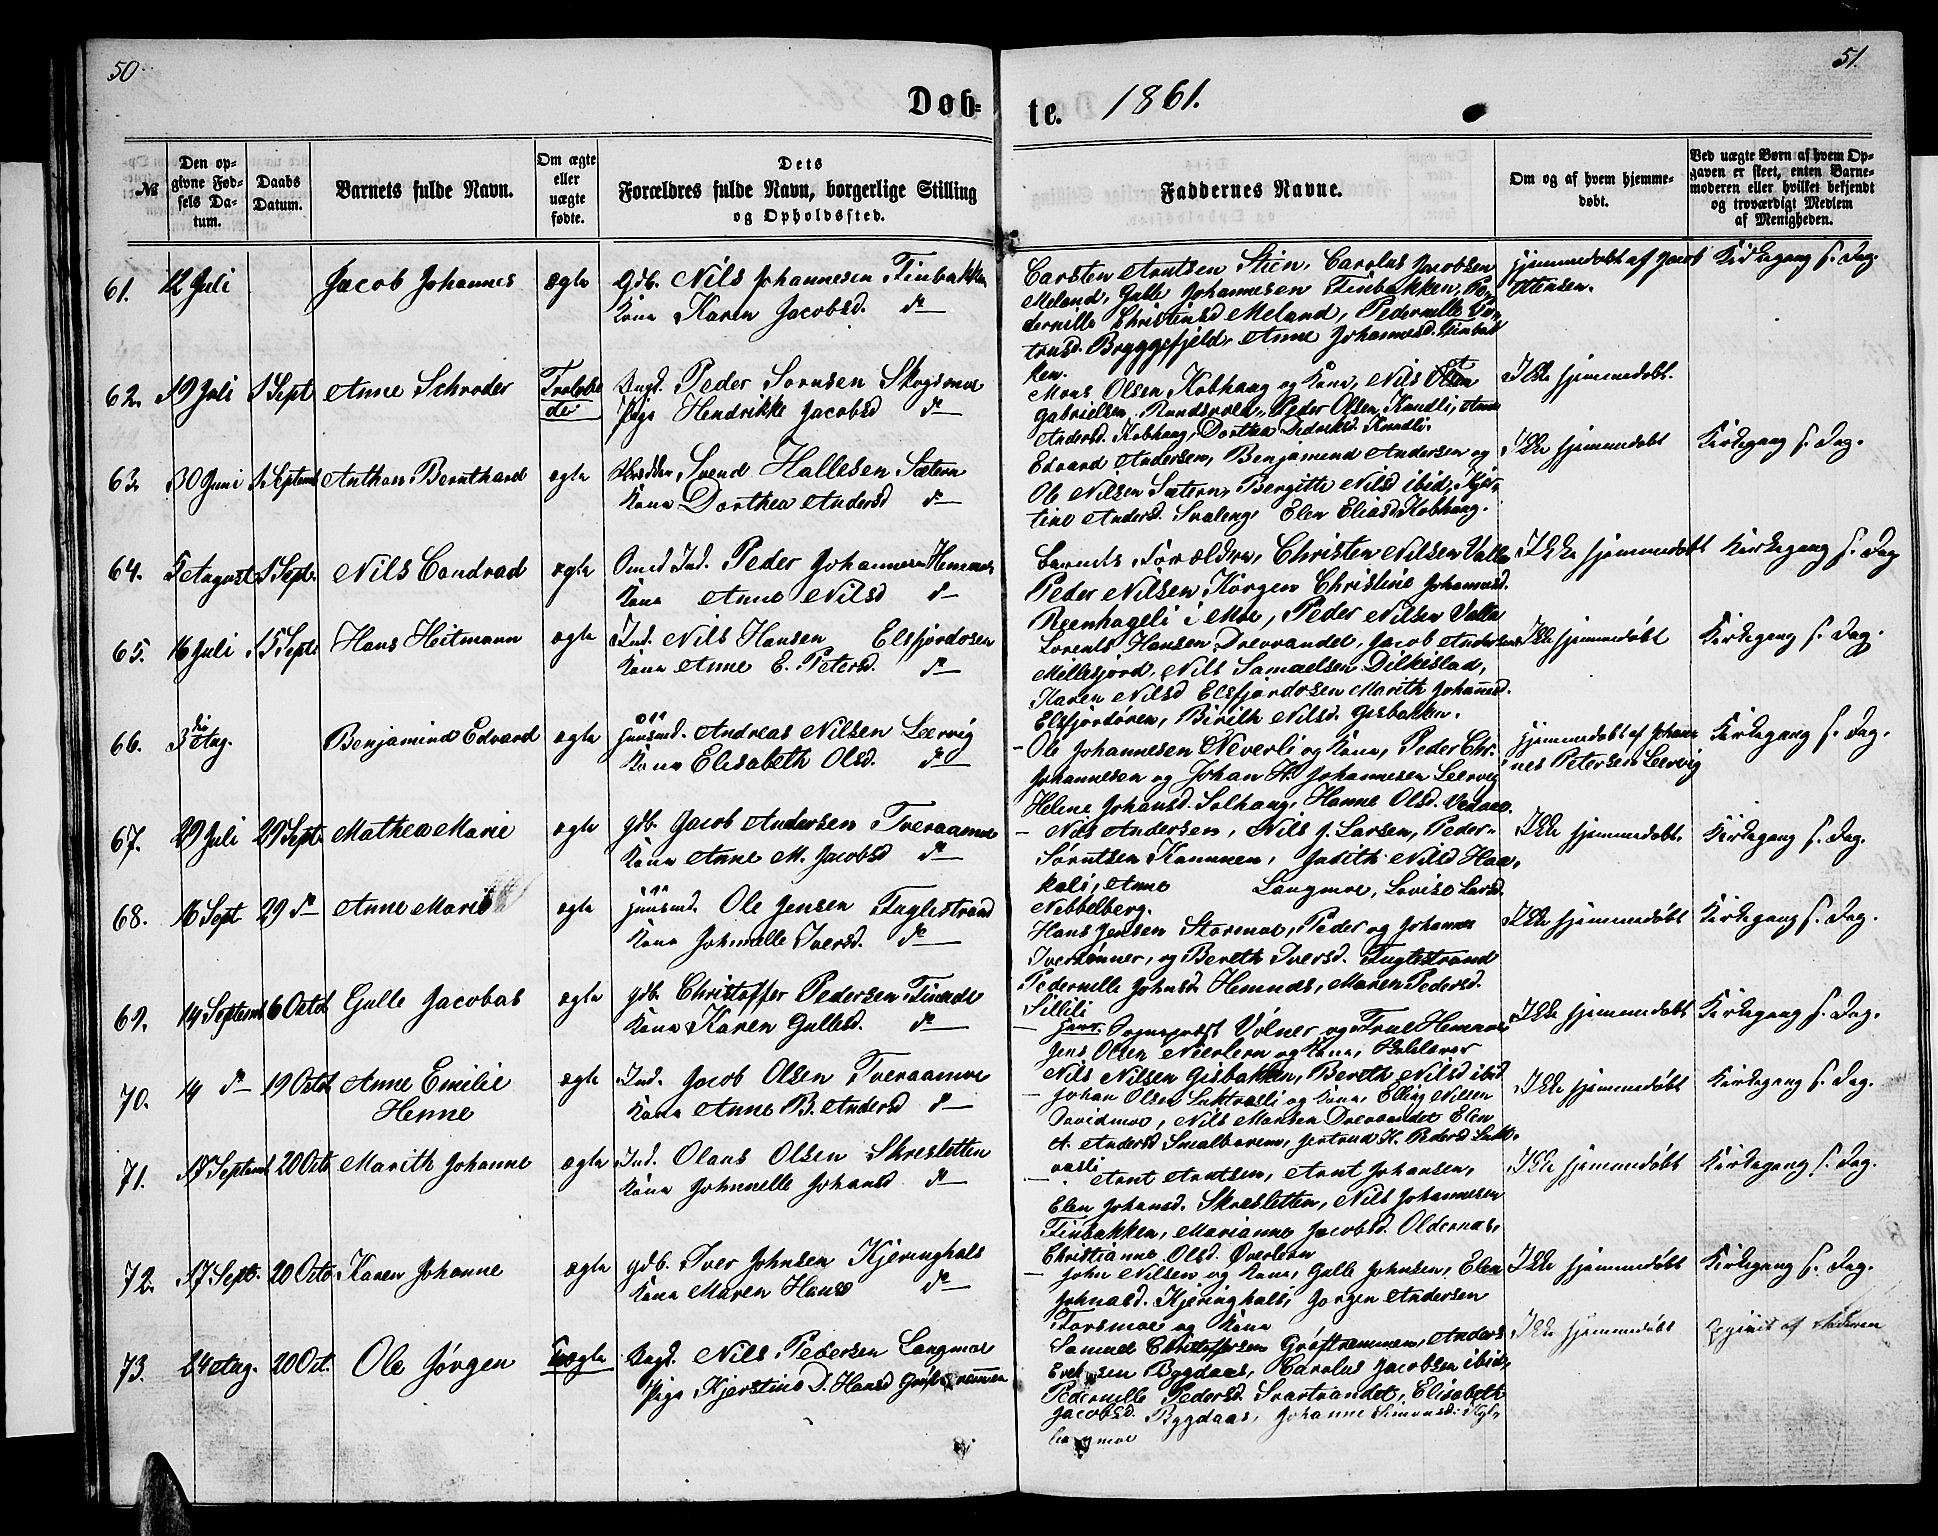 50.
51.
Døb-
te. 1861.
№
Den op-
givne Fød-
sels Da-
tum.
Daabs
Datum.
Barnets fulde Navn.
Om ægte
eller
uægte
fødte.
Dets
Forældres fulde Navn, borgerlige Stilling
og Opholdssted.
Faddernes Navne.
Om og af hvem hjemme-
døbt.
Ved uægte Børn af hvem Op-
gaven er skeet, enten Barne-
moderen eller hvilket bekjendt
og troværdigt Medlem
af Menigheden.
61. 12 Juli Jacob Johannes ægte Gdb. Nils Johannesen Finbakken
Kone Karen Jacobsd. do
Carsten Arntsen Stien, Carolus Jacobsen
Meland, Gulle Johannesen Finbakken, Pe-
dernille Christensd Meland, Pedernelle Pe-
trusd. Bryggefjeld, Anne Johannesd. Finbak
ken.
Hjemmedøbt af Jacob
Ottensen.
Kirkegang s. Dag.
62. 19 Juli 1 Sept Anne Schrøder Trolove
de
Ungk. Peder Sørnsen Skogsmoe
Pige Hendrikke Jacobsd do
Mons Olsen Kobhaug og Kone, Nils
Gabrielsen, Rundvold, Peder Olsen, Kandli, Anne
Andersd. Kobhaug, Dorthea Didriksd Kandli.
Ikke hjemmedøbt.
63. 30 Juni 1 Septemb Anthon Bernthard ægte Svend Hallesen Sætern
Kone Dorthea Andersd do
Edvard Andersen, Benjamind Andersen og
Ole Nilsen Sætern, Bergitte Nilsd ibid, Kjer-
tine Andersd. Svaleng, Elen Eliasd Kobhaug.
Ikke hjemmedøbt Kirkegang s. Dag.
64. 5 August 1 Sept. Nils Condrad ægte Smed Ind. Peder Johannesen Hemnes
Kone Anne Nilsd do
Barnets Forældre, Christen Nilsen Valla
Peder Nilsen Korgen Christine Johannesd.
Reenhageli i Moe, Peder Nilsen Valla
Ikke hjemmedøbt Kirkegang s. Dag
65. 16 Juli 15 Sept. Hans Heitmann ægte Ind. Nils Hansen Elsfjordosen
Kone Anne E. Petersd. do
Lorents Hansen Drevrandet, Jacob Andersen
Millesjord, Nils Samuelsen Dilkestad,
Karen Nilsd Elsfjordosen Marith Johannd.
Elsfjordøren, Birith Nilsd. Gisbakken.
Ikke hjemmedøbt Kirkegang s. Dag.
66. 3die Aug. Benjamind Edvard ægte Huusmd. Andreas Nilsen Leervig
Kone Elisabeth Olsd. do
Ole Johannesen Neverli og Kone, Peder Chr.
Johannesen og Johan H. Johannesen Leervig
Helene Johansd. Solhaug, Hanne Olsd. Vesaae.
Hjemmedøbt af Johan-
nes Petersen Leervig
Kirkegang s. Dag.
67. 29 Juli 29 Sept. Mathea Marie ægte Gdb. Jacob Andersen Tveraamoe
Kone Anne M. Jacobsd do
Nils Andersen, Nils J. Larsen, Peder
Sørntsen Kammen, Judith Nilsd Haa-
kali, Anne Langmoe, Lovise Larsd.
Nebbelberg.
Ikke hjemmedøbt. Kirkegang s. Dag.
68. 16 Sept 29 do Anne Marie ægte Huusmd. Ole Jensen Fuglestrand
Kone Johnnelle Iversd. do
Hans Jensen Stormoe, Peder og Johannes
Iversønner, og Bereth Iversd. Fuglestrand
Pedernelle Johnsd. Hemnes, Maren Pedersd.
Sillili
Ikke hjemmedøbt Kirkegang s. Dag.
69. 14 Septemb 6 Octob Gulle Jacobas ægte Gdb. Christoffer Pedersen Fineide
Kone Karen Gullesd. do
Sognepræst Volner og Frue Hemnes,
Jens Olsen Neerlern og Kone,
Nils Nilsen Gisbakken, Bereth Nilsd ibid
Ikke hjemmedøbt Kirkegang s. Dag.
70. 14 do 19 Octob Anne Emilie
Henne
ægte Ind. Jacob Olsen Tveraamoe
Kone Anne B. Andersd do
Johan Olsen Luktvasli og Kone, Elling Nilsen
Davidmoe, Nils Monsen Drevrandet Elen
A. Andersd Smalbaren, Jertrud H. Pedersd Lukt-
vasli
Ikke hjemmedøbt Kirkegang s. Dag.
71. 17 Septemb 20 Octo Marith Johanne ægte Ind. Olaus Olsen Skresletten
Kone Johnnelle Johansd do
Arnt Arntsen, Arnt Johansen,
Elen Johansd. Skresletten, Nils Johannesen
Finbakken, Marianne Jacobsd. Oldernes,
Christianne Olsd. Øverlern
Ikke hjemmedøbt Kirkegang s. Dag.
72. 17 Sept. 20 Octo Karen Johanne ægte Gdb. Iver Johnsen Kjeringhals
Kone Maren Hansd do
John Nilsen og Kone, Gulle Johnsen, Elen
Johnasd. Kjeringhals, Jorgen Andersen
Forsmoe og Kone
Ikke hjemmedøbt Kirkegang s. Dag.
73. 24 Aug. 20 Oct. Ole Jørgen Uægte Ungk. Nils Pedersen Langmoe
Pige Kjerstine D. Hansd Grøftremmen
Samuel Christoffersen Grøftremmen, Anders
Bygdaas, Carolus Jacobsen ibid,
Pedernelle Pedersd. Svartvandet, Elisabeth
Jacobsd. Bygdaas, Johanne Simonsd.
Langmoe
Ikke hjemmedøbt Opgivet af Moderen